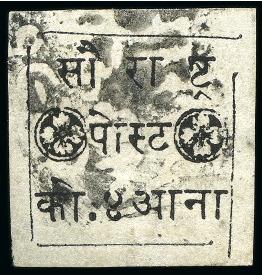 सौ रा ष्ट्र
पोस्ट
की. ४ आना